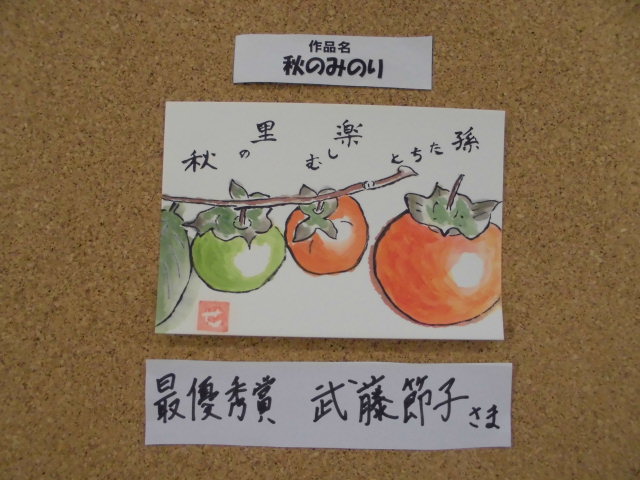 作品名
秋のみのり
孫たちと楽しむ里の秋
せ
最優秀賞 武藤節子さま